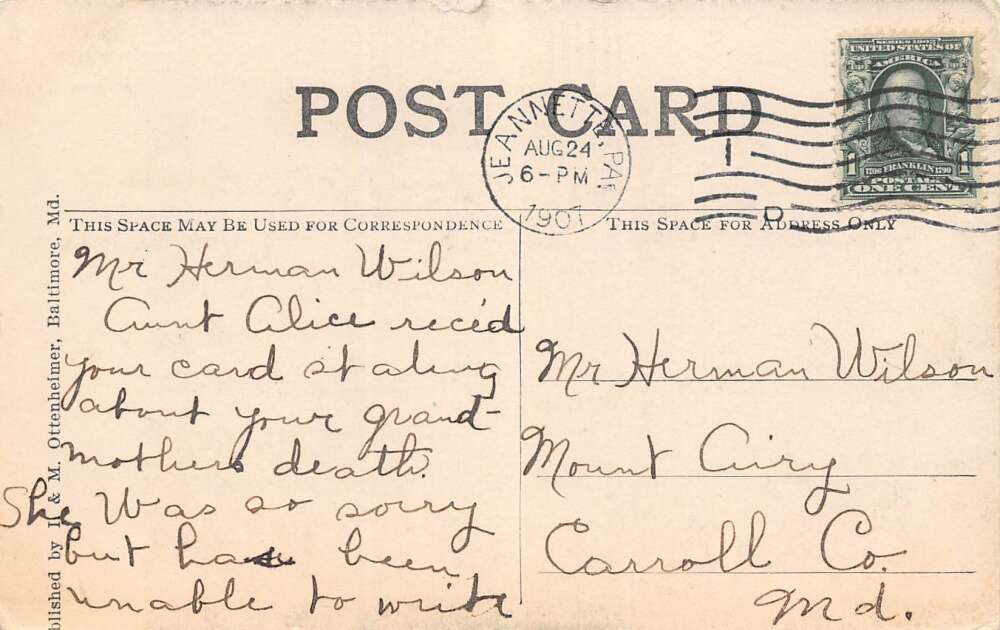 POST CARD
JEANNETTE, PA.
AUG 24
6-PM
1907
SERIES 1902
UNITED STATES OF
AMERICA
1 1706 FRANKLIN 1790 1
POSTAGE
ONE CENT
D
THIS SPACE MAY BE USED FOR CORRESPONDENCE
THIS SPACE FOR ADDRESS ONLY
blished by I. & M. Ottenheimer, Baltimore, Md.
Mr Herman Wilson
Aunt Alice rece'd
your card stating
about your grand-
mothers death.
She was so sorry
but has been
unable to write
Mr Herman Wilson
Mount Airy
Carroll Co.
Md.